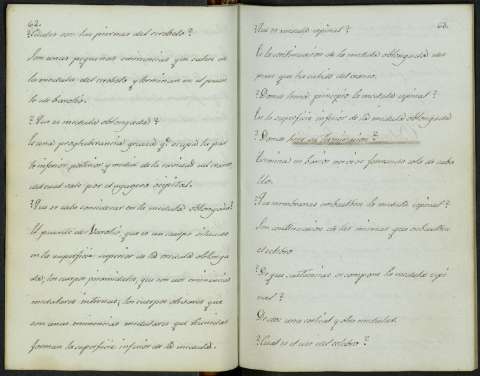 62.
?Cuales son las piernas del cerebelo?
Son unas pequeñas eminencias que salen de
la medula del cerebelo y terminan en el puen
te de barolio.
?Que es medula oblongada?
Es una protuberancia gruesa qe. ocupa la par
te inferior posterior y media de la cavidad del craneo
del cual sale por el agugero ocipital.
?Que se debe considerar en la medula oblongada?
El puente de Varolio, que es un cuerpo situado
en la superficie superior de la medula oblonga
da; los cuerpos piramidales, que son dos eminencias
medulares internas; los cuerpos olivares que
son unas eminencias medulares que
forman la superficie inferior de la medula.
63.
?Que es medula espinal?
Es la continuacion de la medula oblongada des
pues que ha salido del craneo.
?Donde toma principio la medula espinal?
En la superficie inferior de la medula oblongada
?Donde tiene su terminacion?
Termina en varios nervios formando cola de caba
llo.
?Que membranas embuelben la medula espinal?
Son continuacion de las mismas que embuelben
el celebro
?De que sustancias se compone la medula espi
nal?
De dos una cortical y otra medular.
?Cual es el uso del celebro?